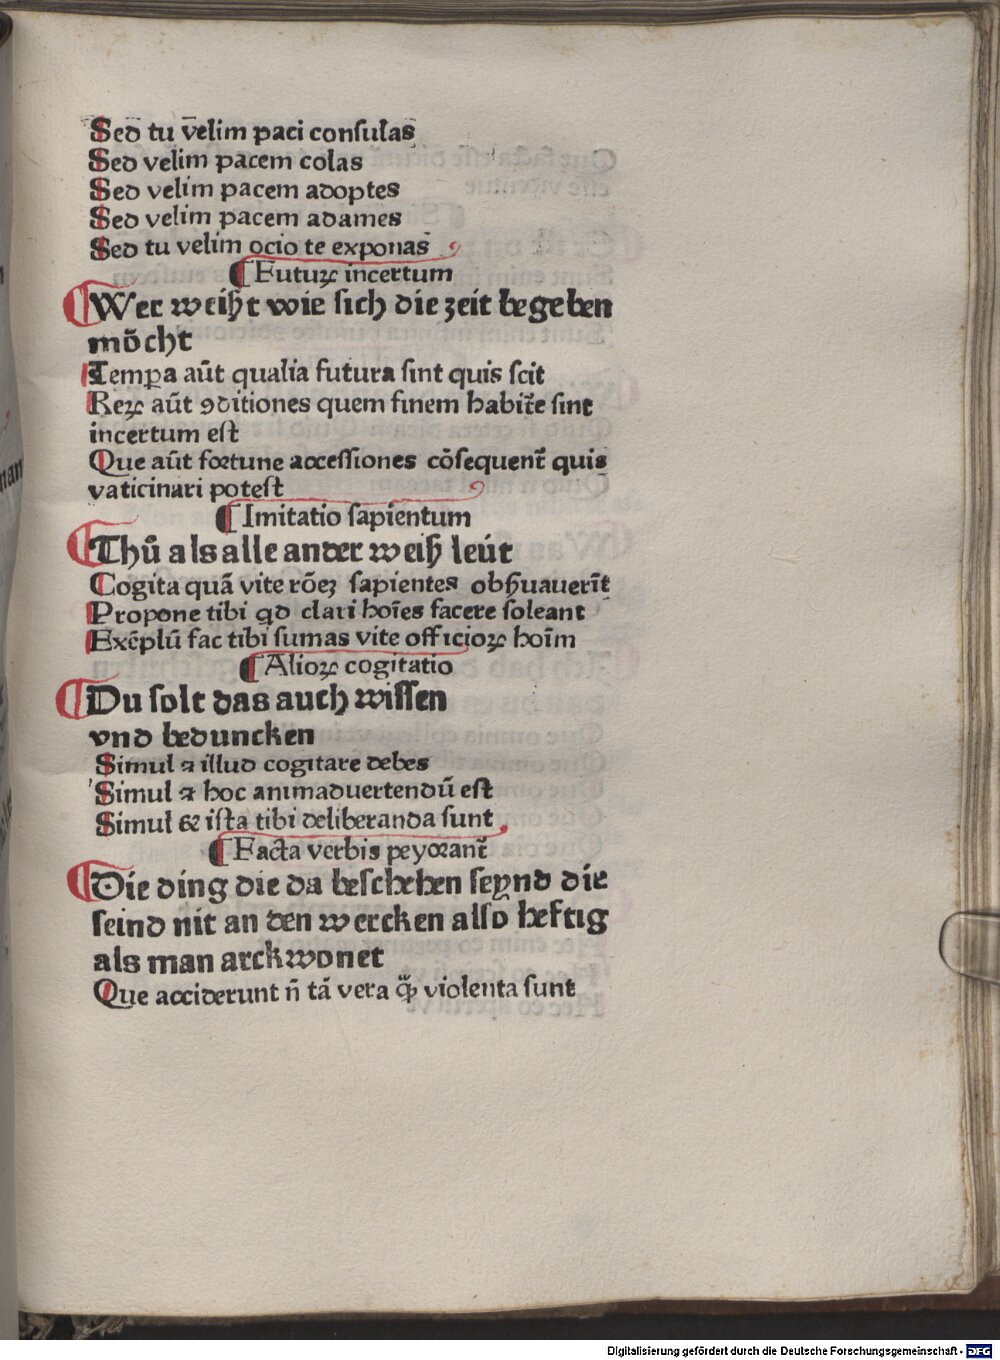 Sed tu velim paci consulas
Sed velim pacem colas
Sed velim pacem adoptes
Sed velim pacem adames
Sed tu velim ocio te exponas
¶Futurꝝ incertum
¶Wer weißt wie sich die zeit begeben
moͤcht
Temꝑa aūt qualia futura sint quis scit
Reꝝ aūt ꝯditiones quem finem habitr̄e sint
incertum est
Que aūt fortune accessiones cōsequent̄ quis
vaticinari potest
¶Imitatio sapientum
¶Thuͦ als alle ander weiß leút
Cogita quā vite rōeꝫ sapientes obẜuauerīt
Propone tibi qd clari hoīes facere soleant
Exēplū fac tibi sumas vite officioꝝ hoīm
¶Alioꝝ cogitatio
¶Du solt das auch wissen
vnd beduncken
Simul ⁊ illud cogitare debes
Simul ⁊ hoc animaduertendū est
Simul & ista tibi deliberanda sunt
¶Facta verbis peyorant̄
¶Die ding die da beschehen seynd die
seind nit an den wercken also heftig
als man arckwonet
Que acciderunt n̄ tā vera violenta sunt
nam
Digitalisierung gefördert durch die Deutsche Forschungsgemeinschaft - DFG